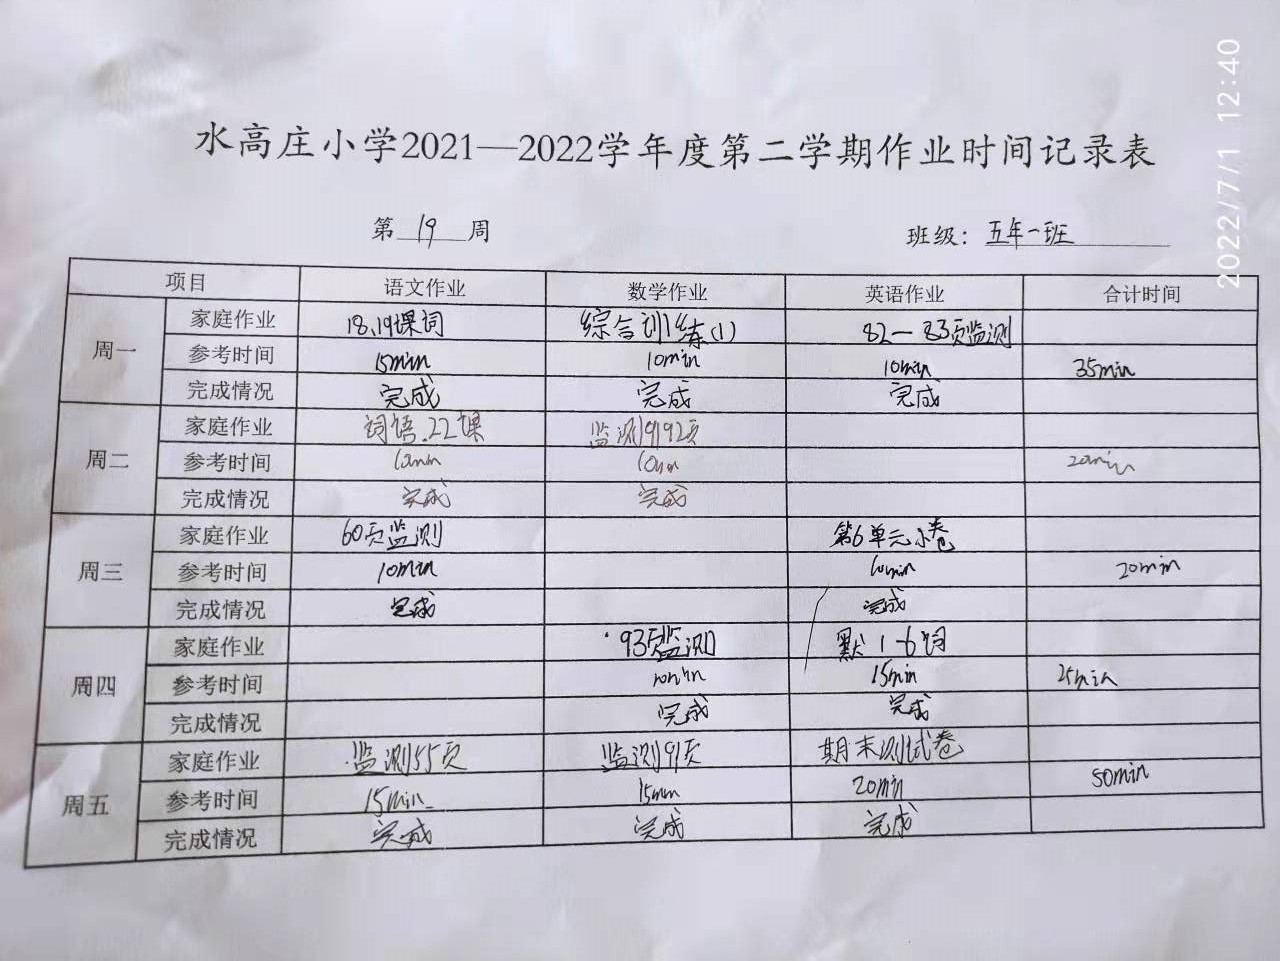 2022/7/1 12:40
水高庄小学2021—2022学年度第二学期作业时间记录表
第 19 周 班级：五年一班
项目 语文作业 数学作业 英语作业 合计时间
周一
家庭作业 18、19课词 综合训练(1) 82—83页监测
参考时间 15min 10min 10min 35min
完成情况 完成 完成 完成
周二
家庭作业 词语.22课 监测9192页
参考时间 10min 10min 20min
完成情况 完成 完成
周三
家庭作业 60页监测 第6单元小卷
参考时间 10min 10min 20min
完成情况 完成 完成
周四
家庭作业 93页监测 默1-6词
参考时间 10min 15min 25min
完成情况 完成 完成
周五
家庭作业 监测55页 监测91页 期末测试卷
参考时间 15min 15min 20min 50min
完成情况 完成 完成 完成